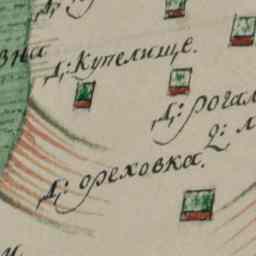 Д: Купелище.
Д: рогал
2: л
Д: ореховка.